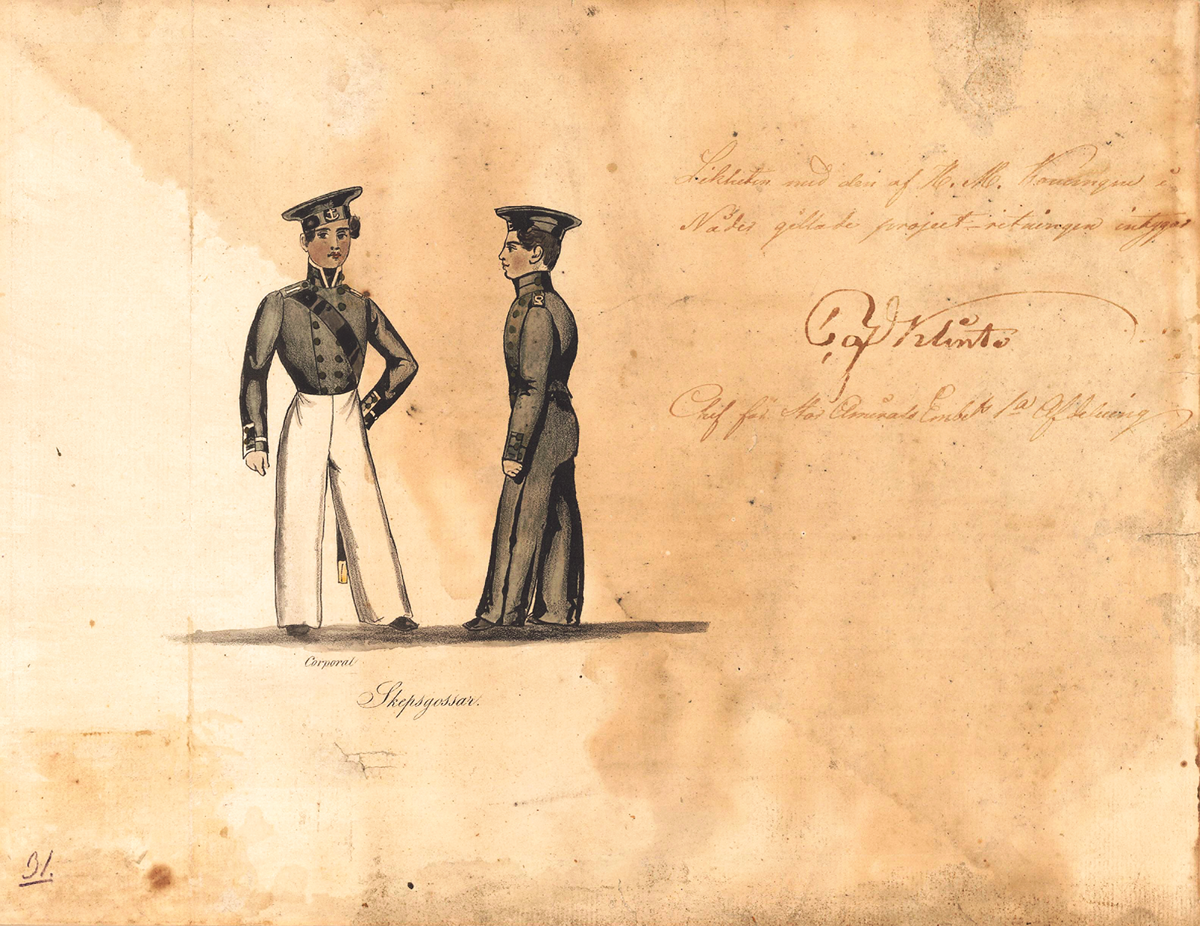 Likheten med den af H. M. Konungen i
Nåder gillade project-ritningen intygar
af Klint
Chef för Stor Amirals Embts 1a Afdelning
Corporal
Skepsgossar.
31.